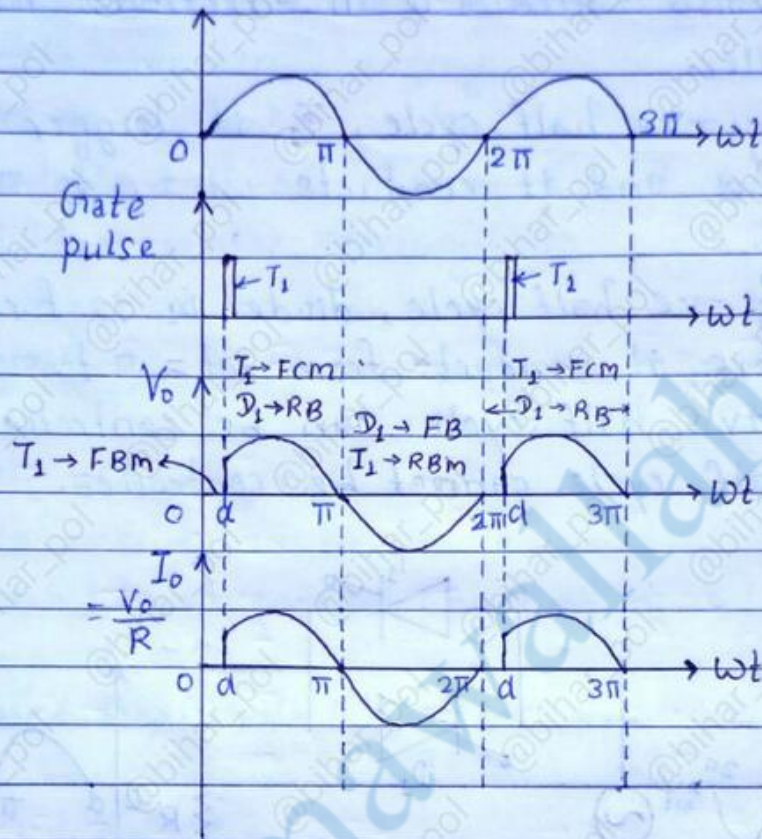 0 π 2π 3π ωt
Gate
pulse
T₁ T₁
ωt
V₀
T₁→FCM T₁→FCM
D₁→RB D₁→RB
D₁→FB
T₁→FBM I₁→RBM
ωt
0 α π 2π α 3π
I₀
= V₀/R
0 α π 2π α 3π ωt
@bihar_pol